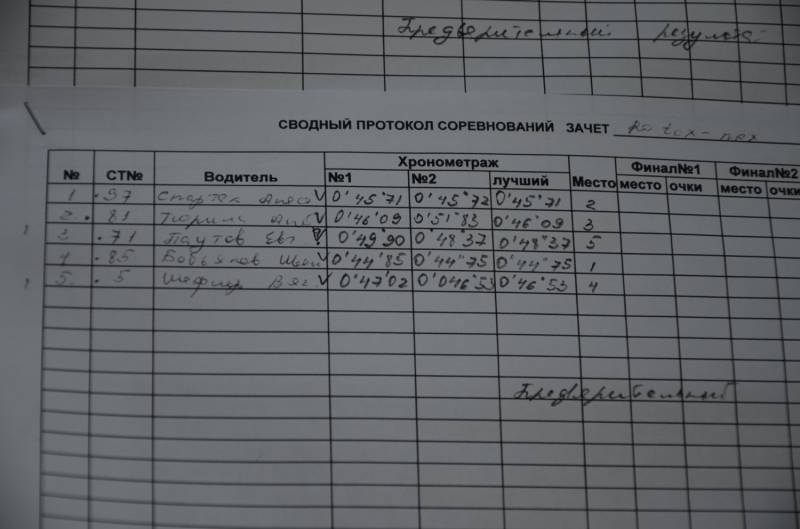 Предварительный результат
СВОДНЫЙ ПРОТОКОЛ СОРЕВНОВАНИЙ ЗАЧЕТ Rotax-max
№ СТ№ Водитель Хронометраж Место Финал№1 Финал№2
№1 №2 лучший место очки место очки
1 97 0'45"71 0'45"72 0'45"71 2
2 81 Тюрина 0'46"09 0'51"83 0'46"09 3
3 71 Паутов Евг 0'49"90 0'48"37 0'48"37 5
4 85 0'44"85 0'44"75 0'44"75 1
5 5 0'47"02 0'046"53 0'46"53 4
Предварительный